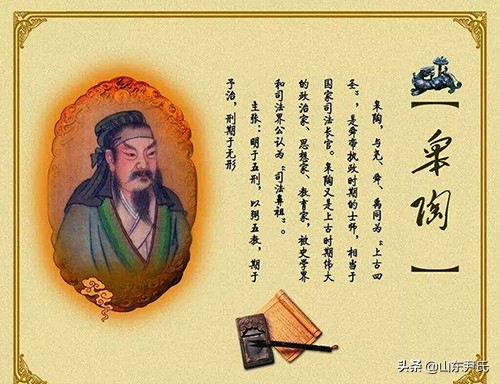 【皋陶】
皋陶，与尧、舜、禹同为“上古四
圣”，是舜帝执政时期的士师，相当于
国家司法长官。皋陶又是上古时期伟大
的政治家、思想家、教育家，被史学界
和司法界公认为“司法鼻祖”。
主张：明于五刑，以弼五教，期于
予治，刑期于无形
头条 @山东尹氏